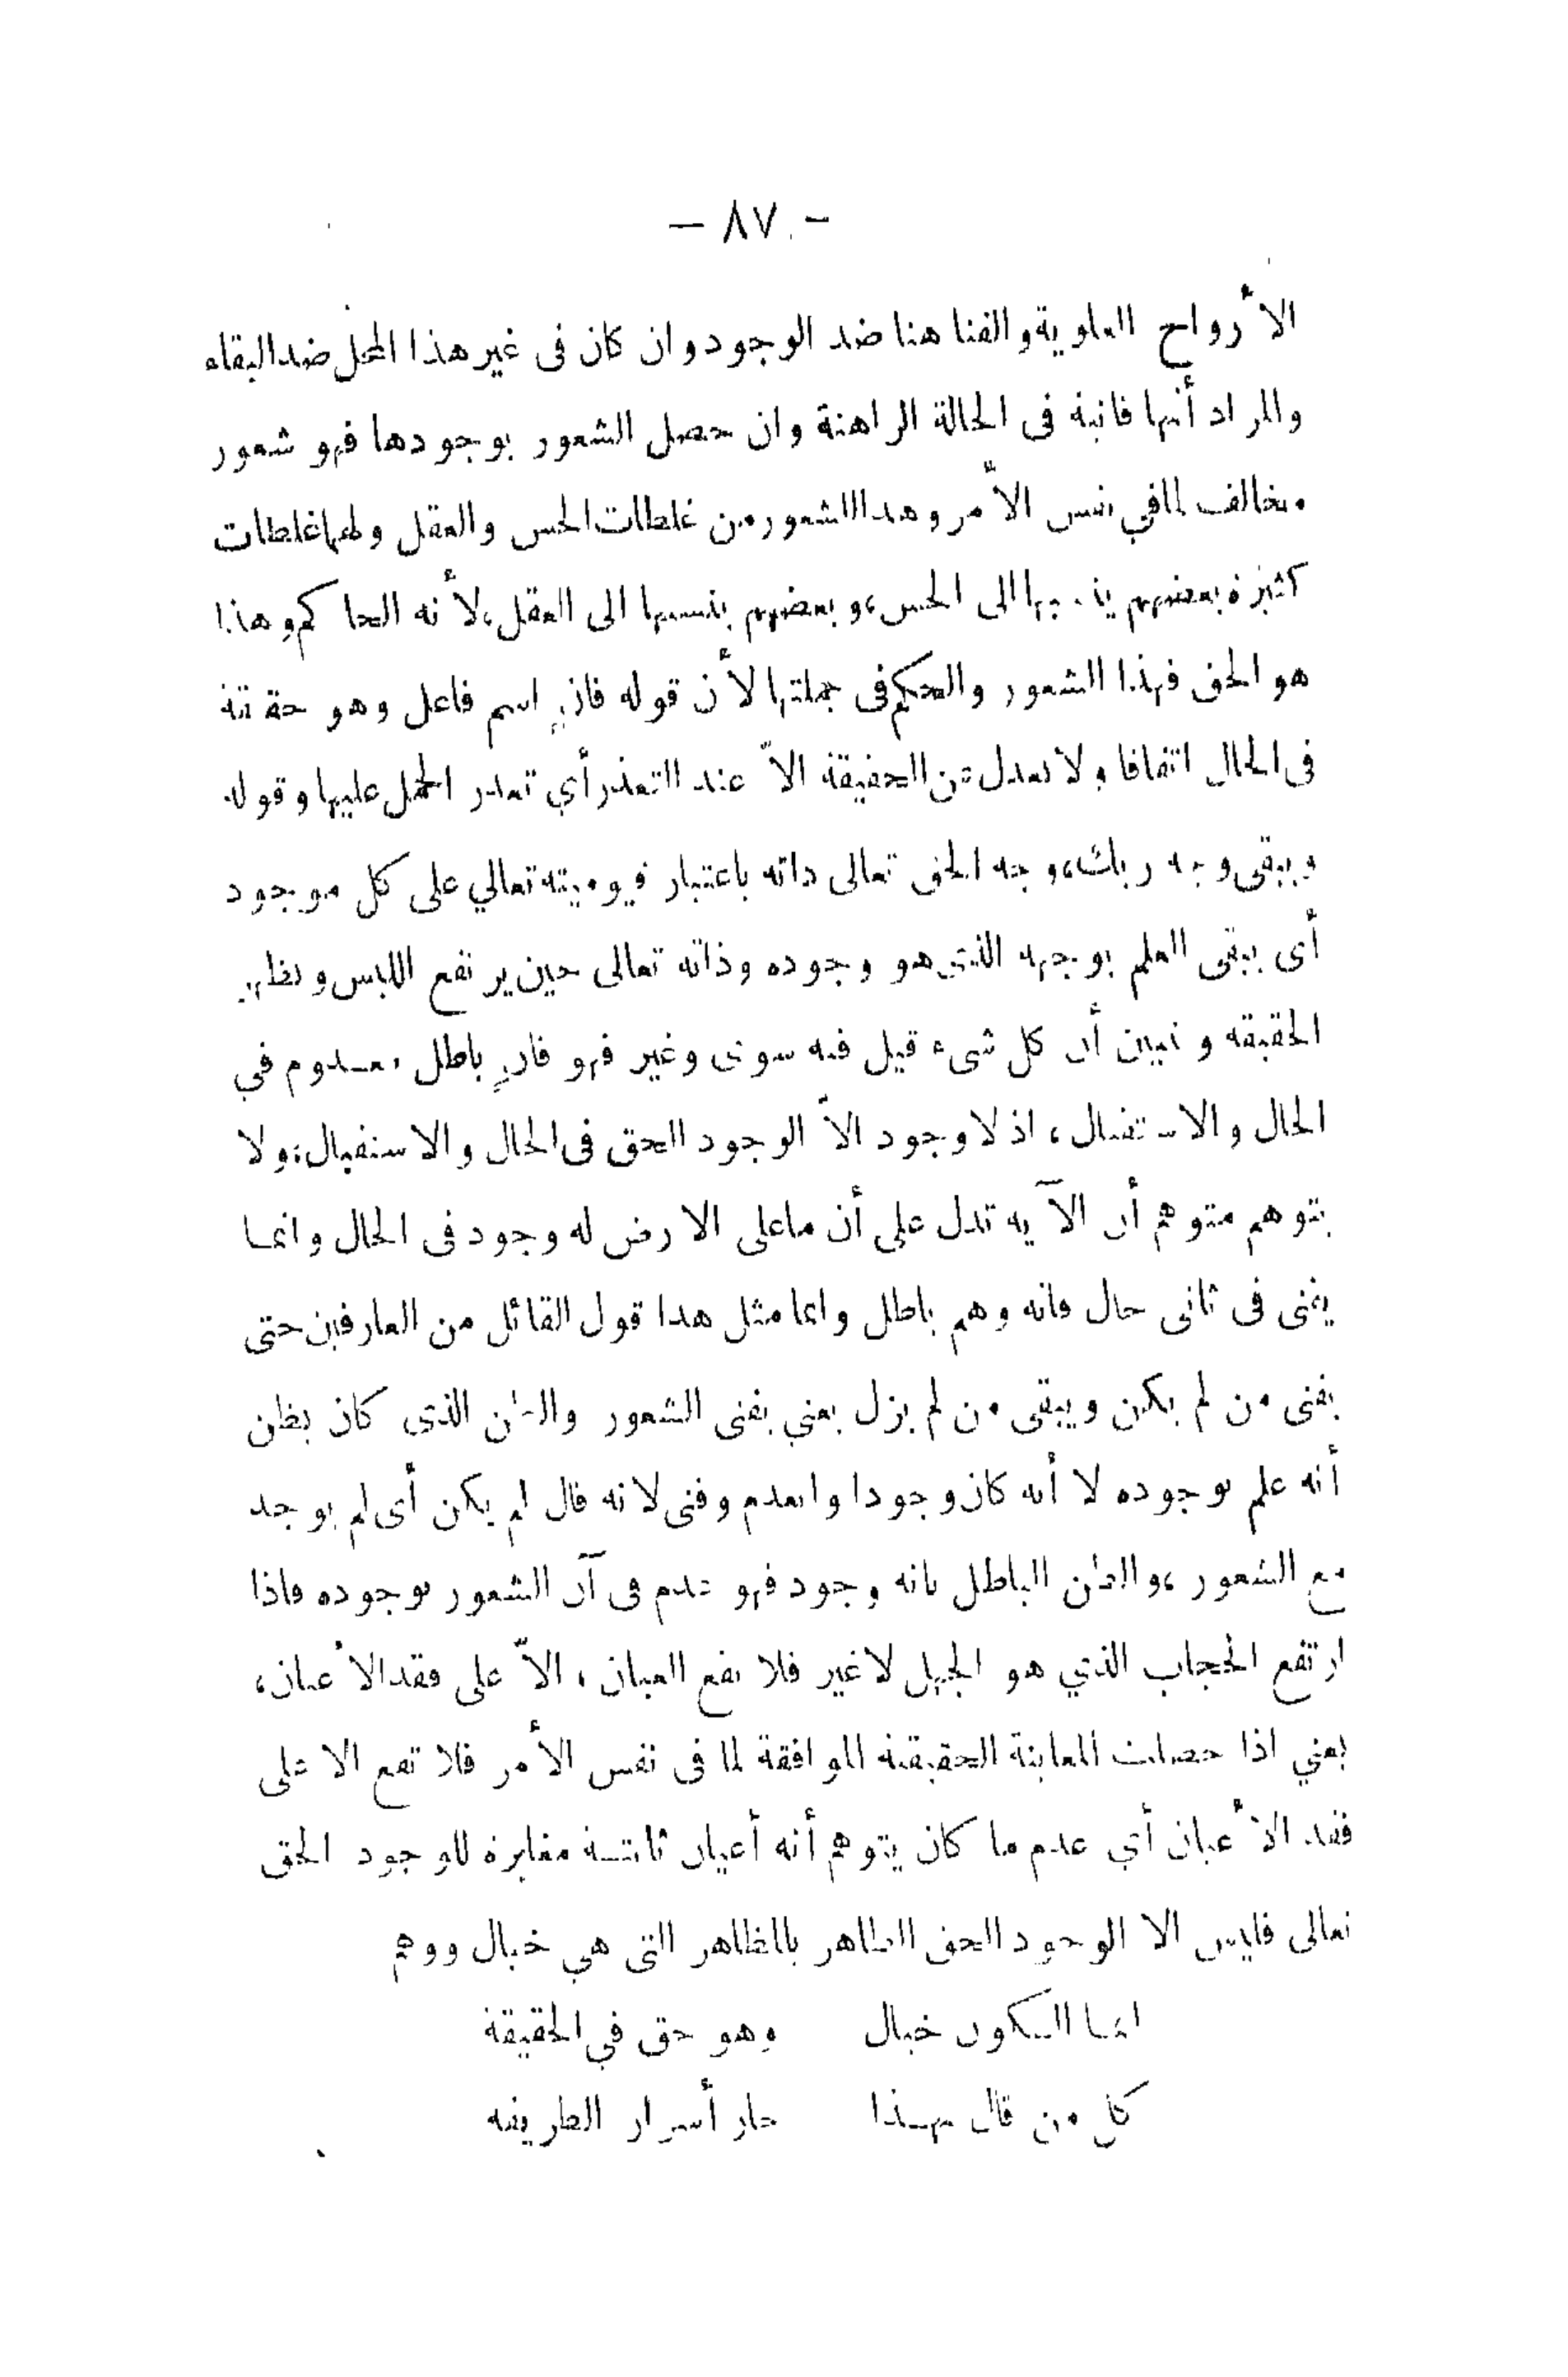 - ٨٧ -
الأرواح العلوية والفنا هنا ضد الوجود وان كان فى غير هذا المحل ضد البقاء
والمراد أنها فانية فى الحالة الراهنة وان حصل الشعور بوجودها فهو شعور
مخالف لما في نفس الأمر وهذا الشعور من غلطات الحس والعقل ولهما غلطات
كثيرة بعضهم ينسبها الى الحس، وبعضهم ينسبها الى العقل، لأنه الحاكم وهذا
هو الحق فهذا الشعور والحكم فى جملتها لأن قوله فانٍ اسم فاعل وهو حقيقة
فى الحال اتفاقا ولا نعدل عن الحقيقة الاّ عند التعذر أي تعذر الحمل عليها وقوله
ويبقى وجه ربك، وجه الحق تعالى ذاته باعتبار قيوميته تعالي على كل موجود
أى يبقى العلم بوجهه الذى هو وجوده وذاته تعالى حين يرتفع اللبس وتظهر
الحقيقة وتبين أن كل شىء قيل فيه سوى وغير فهو فانٍ باطل معدوم في
الحال والاستقبال، اذ لا وجود الاّ الوجود الحق فى الحال والاستقبال، ولا
يتوهم متوهم أن الآية تدل على أن ما على الارض له وجود فى الحال وانمـا
يفنى فى ثانى حال فانه وهم باطل وانما مثل هذا قول القائل من العارفين حتى
يفنى من لم يكن ويبقى من لم يزل يعني يفنى الشعور والظن الذى كان يظن
أنه علم بوجوده لا أنه كان وجودا وانعدم وفنى لانه قال لم يكن أى لم يوجد
مع الشعور، والظن الباطل بانه وجود فهو عدم فى آن الشعور بوجوده فاذا
ارتفع الحجاب الذي هو الجهل لا غير فلا يقع العيان، الاّ على فقد الأعيان،
يعني اذا حصلت المعاينة الحقيقية الموافقة لما فى نفس الأمر فلا تقع الا على
فقد الأعيان أي عدم ما كان يتوهم أنه أعيان ثابتـة مغايرة للوجود الحق
تعالى فليس الا الوجود الحق الظاهر بالمظاهر التى هي خيال ووهم
انمـا الـكون خيال وهو حق في الحقيقة
كل من قال بهـذا حاز أسرار الطريقه